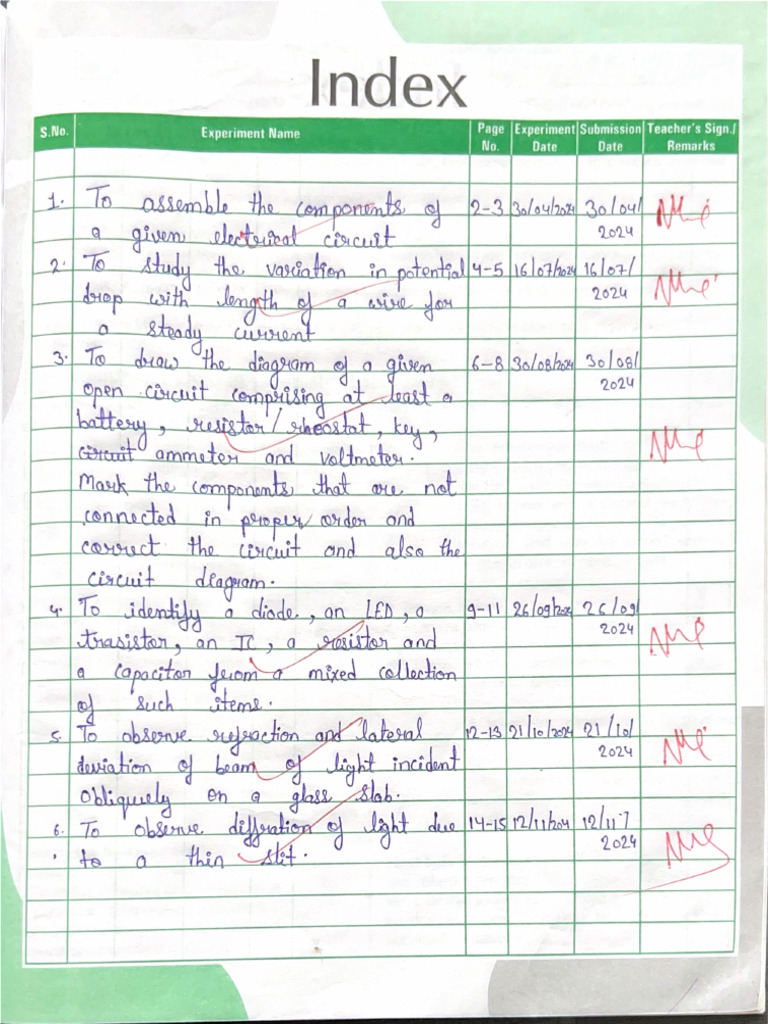 Index
S.No. Experiment Name Page No. Experiment Date Submission Date Teacher's Sign./ Remarks
1. To assemble the components of 2-3 30/04/2024 30/04/
a given electrical circuit 2024
2. To study the variation in potential 4-5 16/07/2024 16/07/
drop with length of a wire for 2024
a steady current
3. To draw the diagram of a given 6-8 30/08/2024 30/08/
open circuit comprising at least a 2024
battery, resistor/rheostat, key,
circuit ammeter and voltmeter.
Mark the components that are not
connected in proper order and
correct the circuit and also the
circuit diagram.
4. To identify a diode, an LED, a 9-11 26/09/2024 26/09/
trasistor, an IC, a resistor and 2024
a capacitor from a mixed collection
of such items.
5. To observe refraction and lateral 12-13 21/10/2024 21/10/
deviation of beam of light incident 2024
obliquely on a glass slab.
6. To observe diffration of light due 14-15 12/11/204 12/11
to a thin slit. 2024